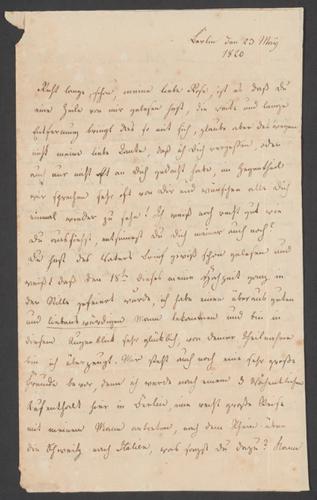 Berlin den 23 May
1820
Recht lange schon, meine liebe Rose, ist es daß du
eine Zeile von mir gelesen hast, die weite und lange
Entfernung bringt dies so mit sich, glaube aber deswegen
nicht meine liebe Tante, daß ich Dich vergessen, oder
auch nur nicht oft an dich gedacht habe, im Gegentheil
wir sprachen sehr oft von Dir und wünschen alle dich
einmal wieder zu sehn! Ich weiß noch recht gut wie
Du aussiehst, entsinnest du dich meiner auch noch?
Du hast des Vaters Brief gewiß schon gelesen und
weißt daß den 18ten dieses meine Hochzeit ganz in
der Stille gefeiert wurde, ich habe einen überaus guten
und liebenswürdigen Mann bekommen und bin in
diesem Augenblick sehr glücklich, von deiner Theilnahme
bin ich überzeugt. Mir steht auch noch eine sehr große
Freude bevor, denn ich werde nach einem 3 Wöchentlichen
Aufenthalt hier in Berlin, eine recht große Reise
mit meinem Mann antreten, nach dem Rhein über
die Schweitz nach Italien, was sagst Du dazu? Kann